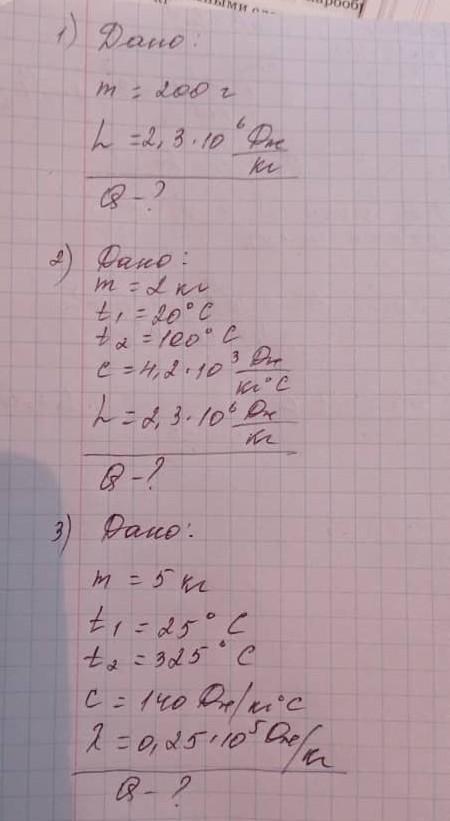 1) Дано:
m = 200 г
L = 2,3 · 10⁶ Дж/кг
Q - ?
2) Дано:
m = 2 кг
t₁ = 20° C
t₂ = 100° C
c = 4,2 · 10³ Дж/кг°C
L = 2,3 · 10⁶ Дж/кг
Q - ?
3) Дано:
m = 5 кг
t₁ = 25° C
t₂ = 325° C
c = 140 Дж/кг°C
λ = 0,25 · 10⁵ Дж/кг
Q - ?